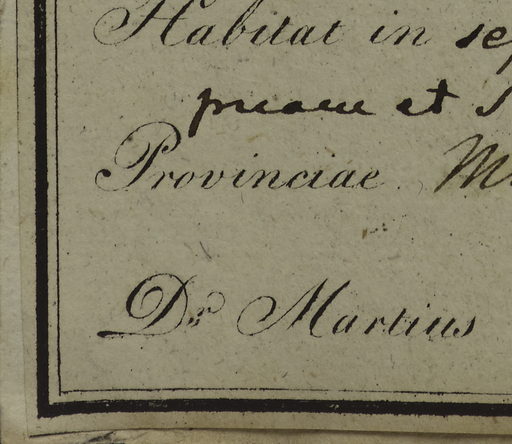 Habitat in se
et
Provinciae M
Dr Martius